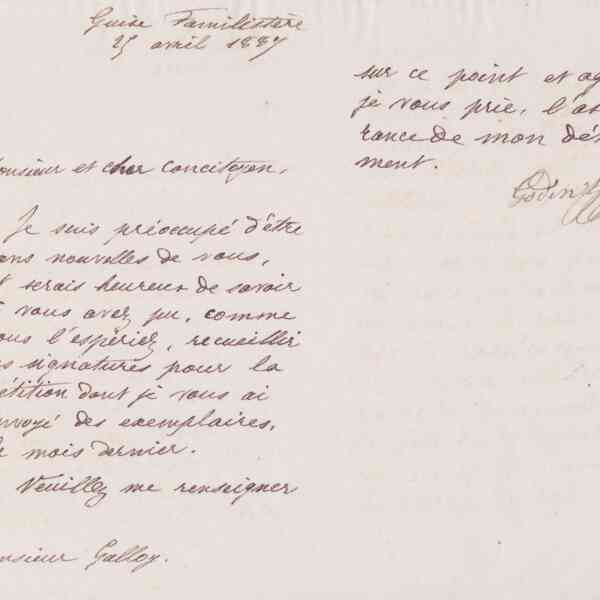 Guise Familistère
25 avril 1887
onsieur et cher concitoyen,
Je suis préoccupé d'être
ans nouvelles de vous,
serais heureux de savoir
vous avez pu, comme
ous l'espériez, recueillir
s signatures pour la
étition dont je vous ai
nvoyé des exemplaires,
e mois dernier.
Veuillez me renseigner
nsieur Galloy.
sur ce point et ag
je vous prie, l'as
rance de mon dé
ment.
Godin